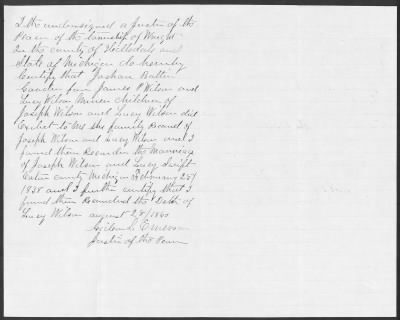 I the undersigned a Justice of the
Peace of the township of Wright
In the county of Hillsdale and
State of Michigan do hereby
Certify that Joshua
for James P Wilson and
Lucy Wilson Minor children of
Joseph Wilson and Lucy Wilson did
Exibit to Me the family Record of
Joseph Wilson and Lucy Wilson and I
found there Recorded the Marriage
of Joseph Wilson and Lucy Swift
Eaton county Michigan February 25/
1838 and I further certify that I
found there Recorded the Deth of
Lucy Wilson august 28/1860
Emerson
Justice of the Peace